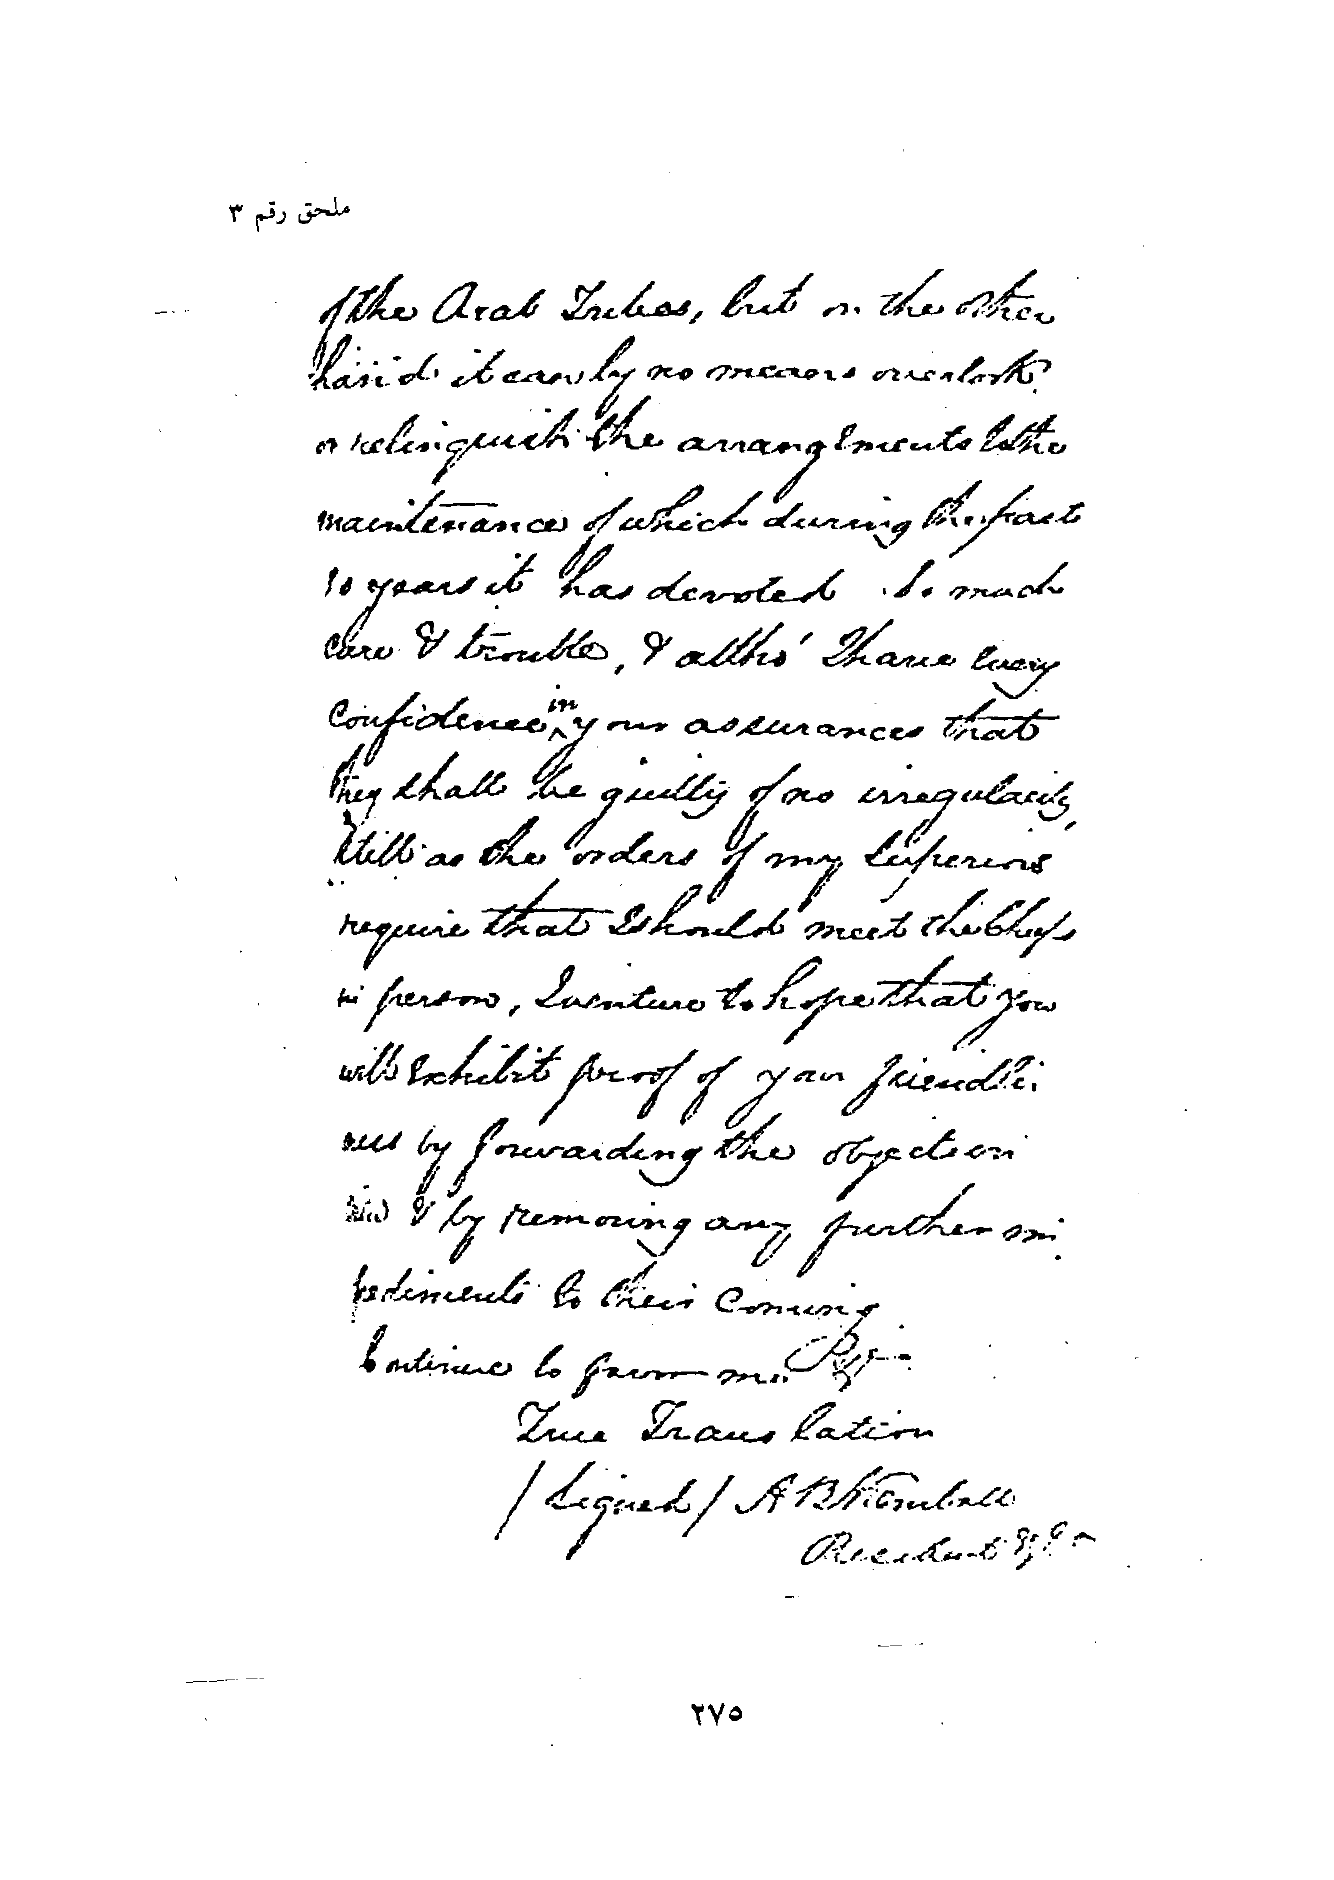 ملحق رقم ٣
of the Arab Tribes, but on the other
hand it can by no means overlook
or relinquish the arrangements to the
maintenance of which during the past
10 years it has devoted so much
care & trouble, & altho' I have every
confidence in your assurances that
they shall be guilty of no irregularity,
still as the orders of my Superiors
require that I should meet the Chiefs
in person, I venture to hope that you
will exhibit proof of your friendli
ness by forwarding the object in
view & by removing any further im
pediments to their coming
Continue to favor me
True Translation
/Signed/ A B Kemball
Resident
٢٧٥